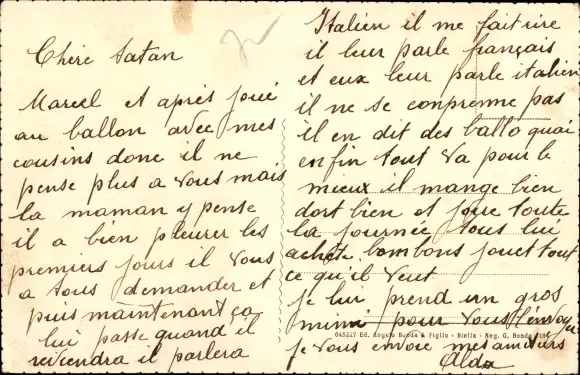 Chère tatan
Marcel et après joué
au ballon avec mes
cousins donc il ne
pense plus a vous mais
la maman y pense
il a bien pleurer les
premiers jours il vous
a tous demander et
puis maintenant ça
lui passe quand il
reviendra il parlera
Italien il me fait rire
il leur parle français
et eux leur parle italien
il ne se conprenne pas
il en dit des ballo quai
enfin tout va pour le
mieux il mange bien
dort bien et joue toute
la journée tous lui
achète bombons jouet tout
ce qu'il veut
je lui prend un gros
mimi pour vous l'envoyer
je vous envoie mes amitiés
Alda
045227 Ed. Angelo Banda & Figlio - Biella - Neg. G. Bonda